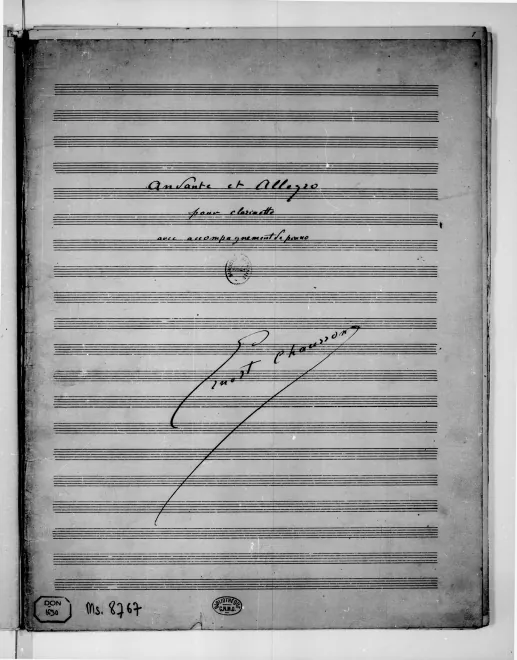 1
Andante et Allegro
pour clarinette
avec accompagnement de piano
Ernest Chausson
DON
Ms. 8767
BIBLIOTHÈQUE